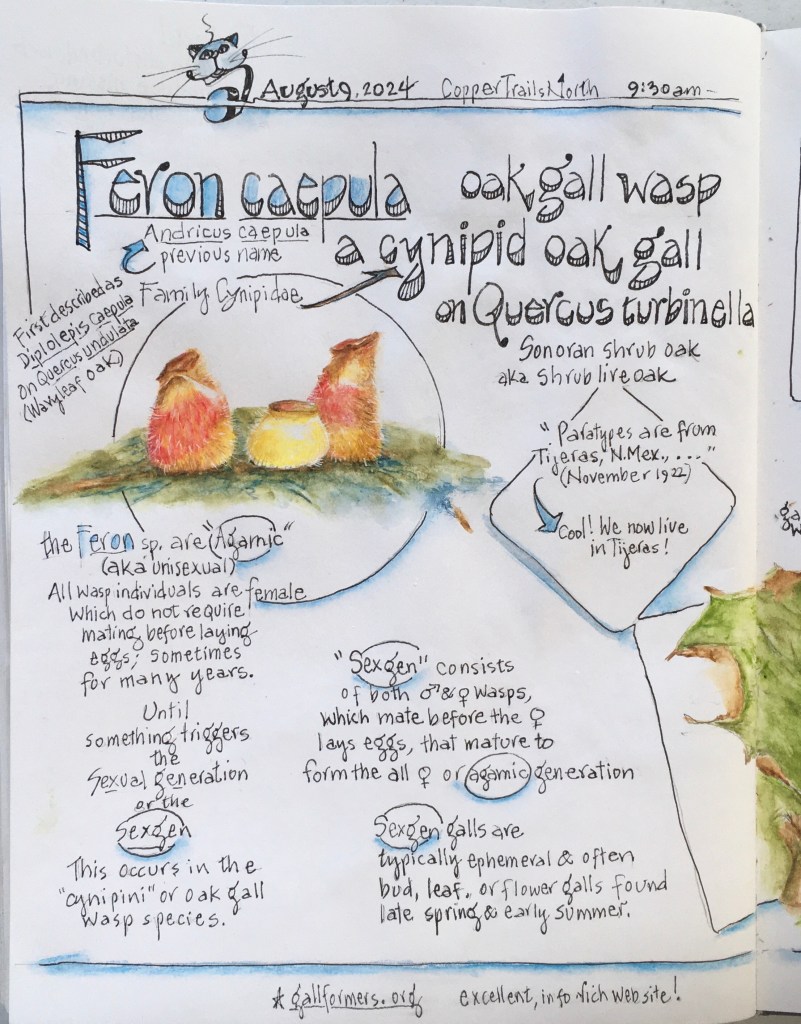 August 9, 2024 Copper Trails North 9:30am-
Feron caepula oak gall wasp
Andricus caepula
previous name
a cynipid oak gall
on Quercus turbinella
Family Cynipidae
First described as
Diplolepis caepula
on Quercus undulata
(Wavyleaf oak)
Sonoran shrub oak
aka shrub live oak
"Paratypes are from
Tijeras, N.Mex., ...."
(November 1922)
Cool! We now live
in Tijeras!
the Feron sp. are "Agamic"
(aka unisexual)
All wasp individuals are female
which do not require
mating before laying
eggs; sometimes
for many years.
Until
something triggers
the
Sexual generation
or the
Sexgen
This occurs in the
"cynipini" or oak gall
wasp species.
"Sexgen" consists
of both ♂ & ♀ wasps,
which mate before the ♀
lays eggs, that mature to
form the all ♀ or agamic generation
Sexgen galls are
typically ephemeral & often
bud, leaf, or flower galls found
late spring & early summer.
* gallformers.org excellent, info rich website!